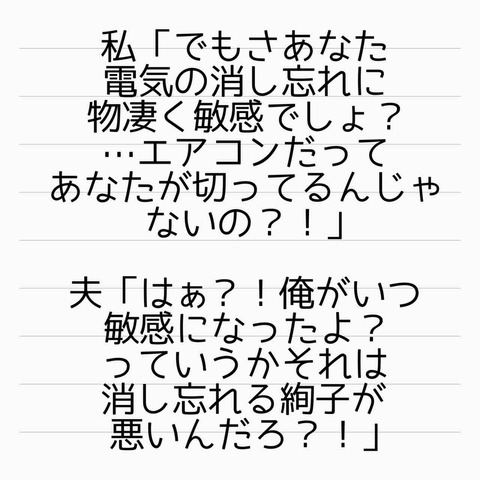 私「でもさあなた
電気の消し忘れに
物凄く敏感でしょ？
…エアコンだって
あなたが切ってるんじゃ
ないの？！」
夫「はぁ？！俺がいつ
敏感になったよ？
っていうかそれは
消し忘れる絢子が
悪いんだろ？！」